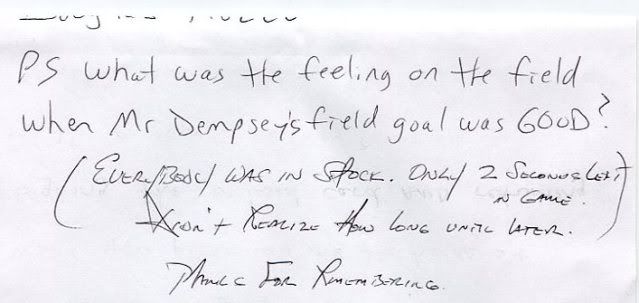 PS What was the feeling on the field
when Mr Dempsey's field goal was GOOD?
(EVERYBODY WAS IN SHOCK. ONLY 2 SECONDS LEFT
IN GAME.
DIDN'T REALIZE HOW LONG UNTIL LATER.)
THANKS FOR REMEMBERING.